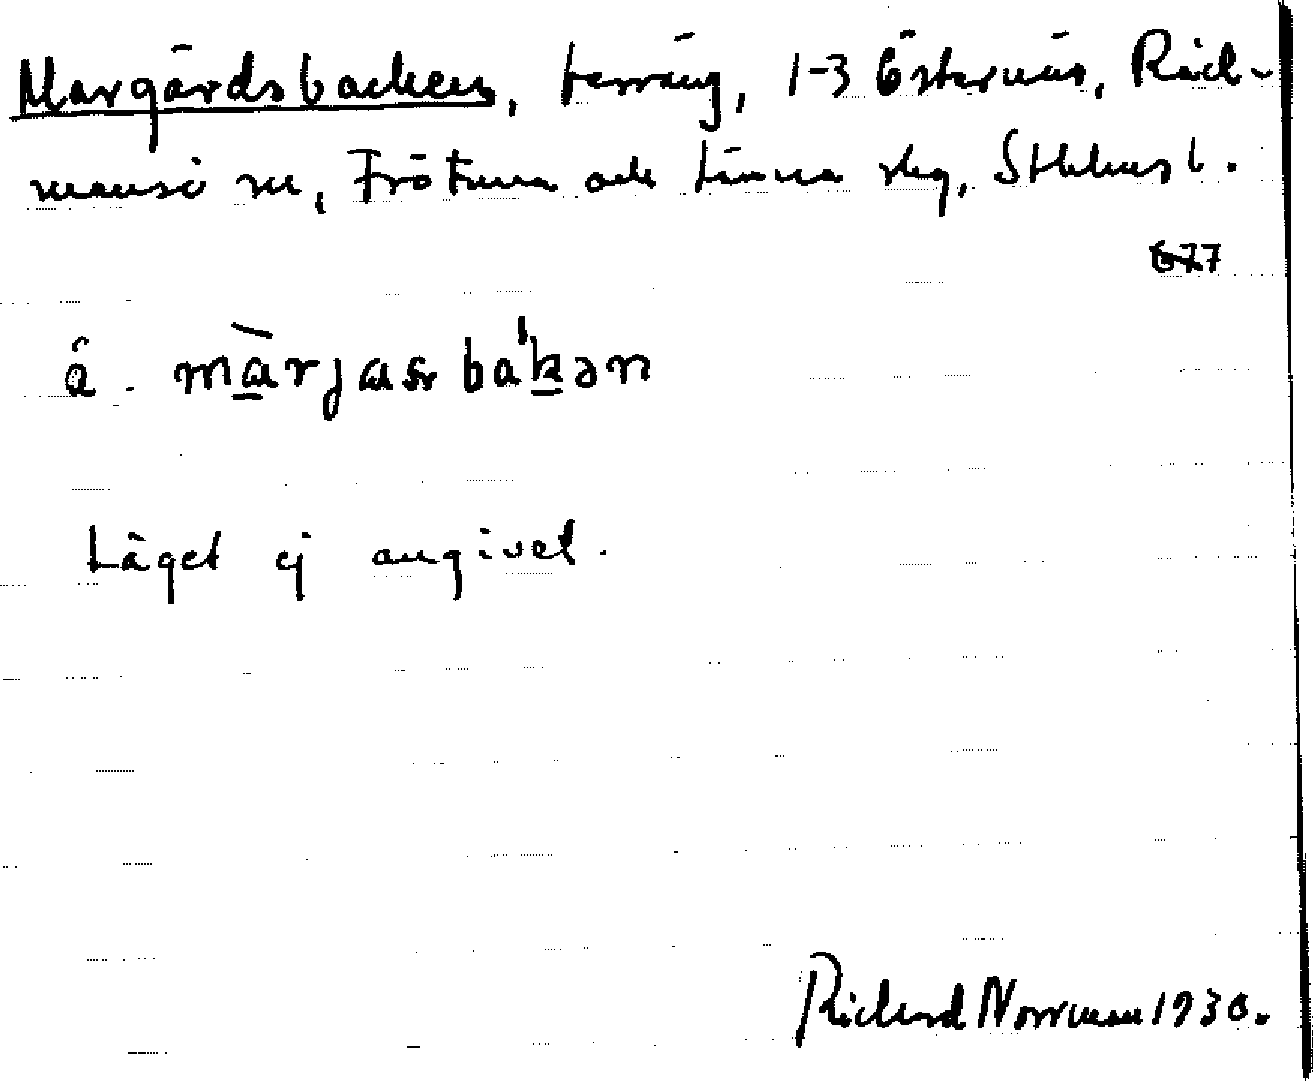 Margärdsbacken, terräng, 1-3 Östernäs, Råd-
mansö sn, Frötuna och Länna skg, Sthlms l.
677
å. màrjasbakən
Läget ej angivet.
Richard Norrman 1930.